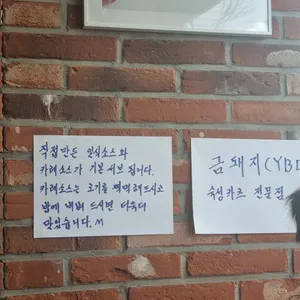 직접 만든 안심소스와
카레소스가 기본 서브 됩니다.
카레소스는 오기를 팩팩 해드시고
밥에 비벼 드시면 더욱더
맛있습니다. ^^
금돼지(YBD
숙성카츠 전문점